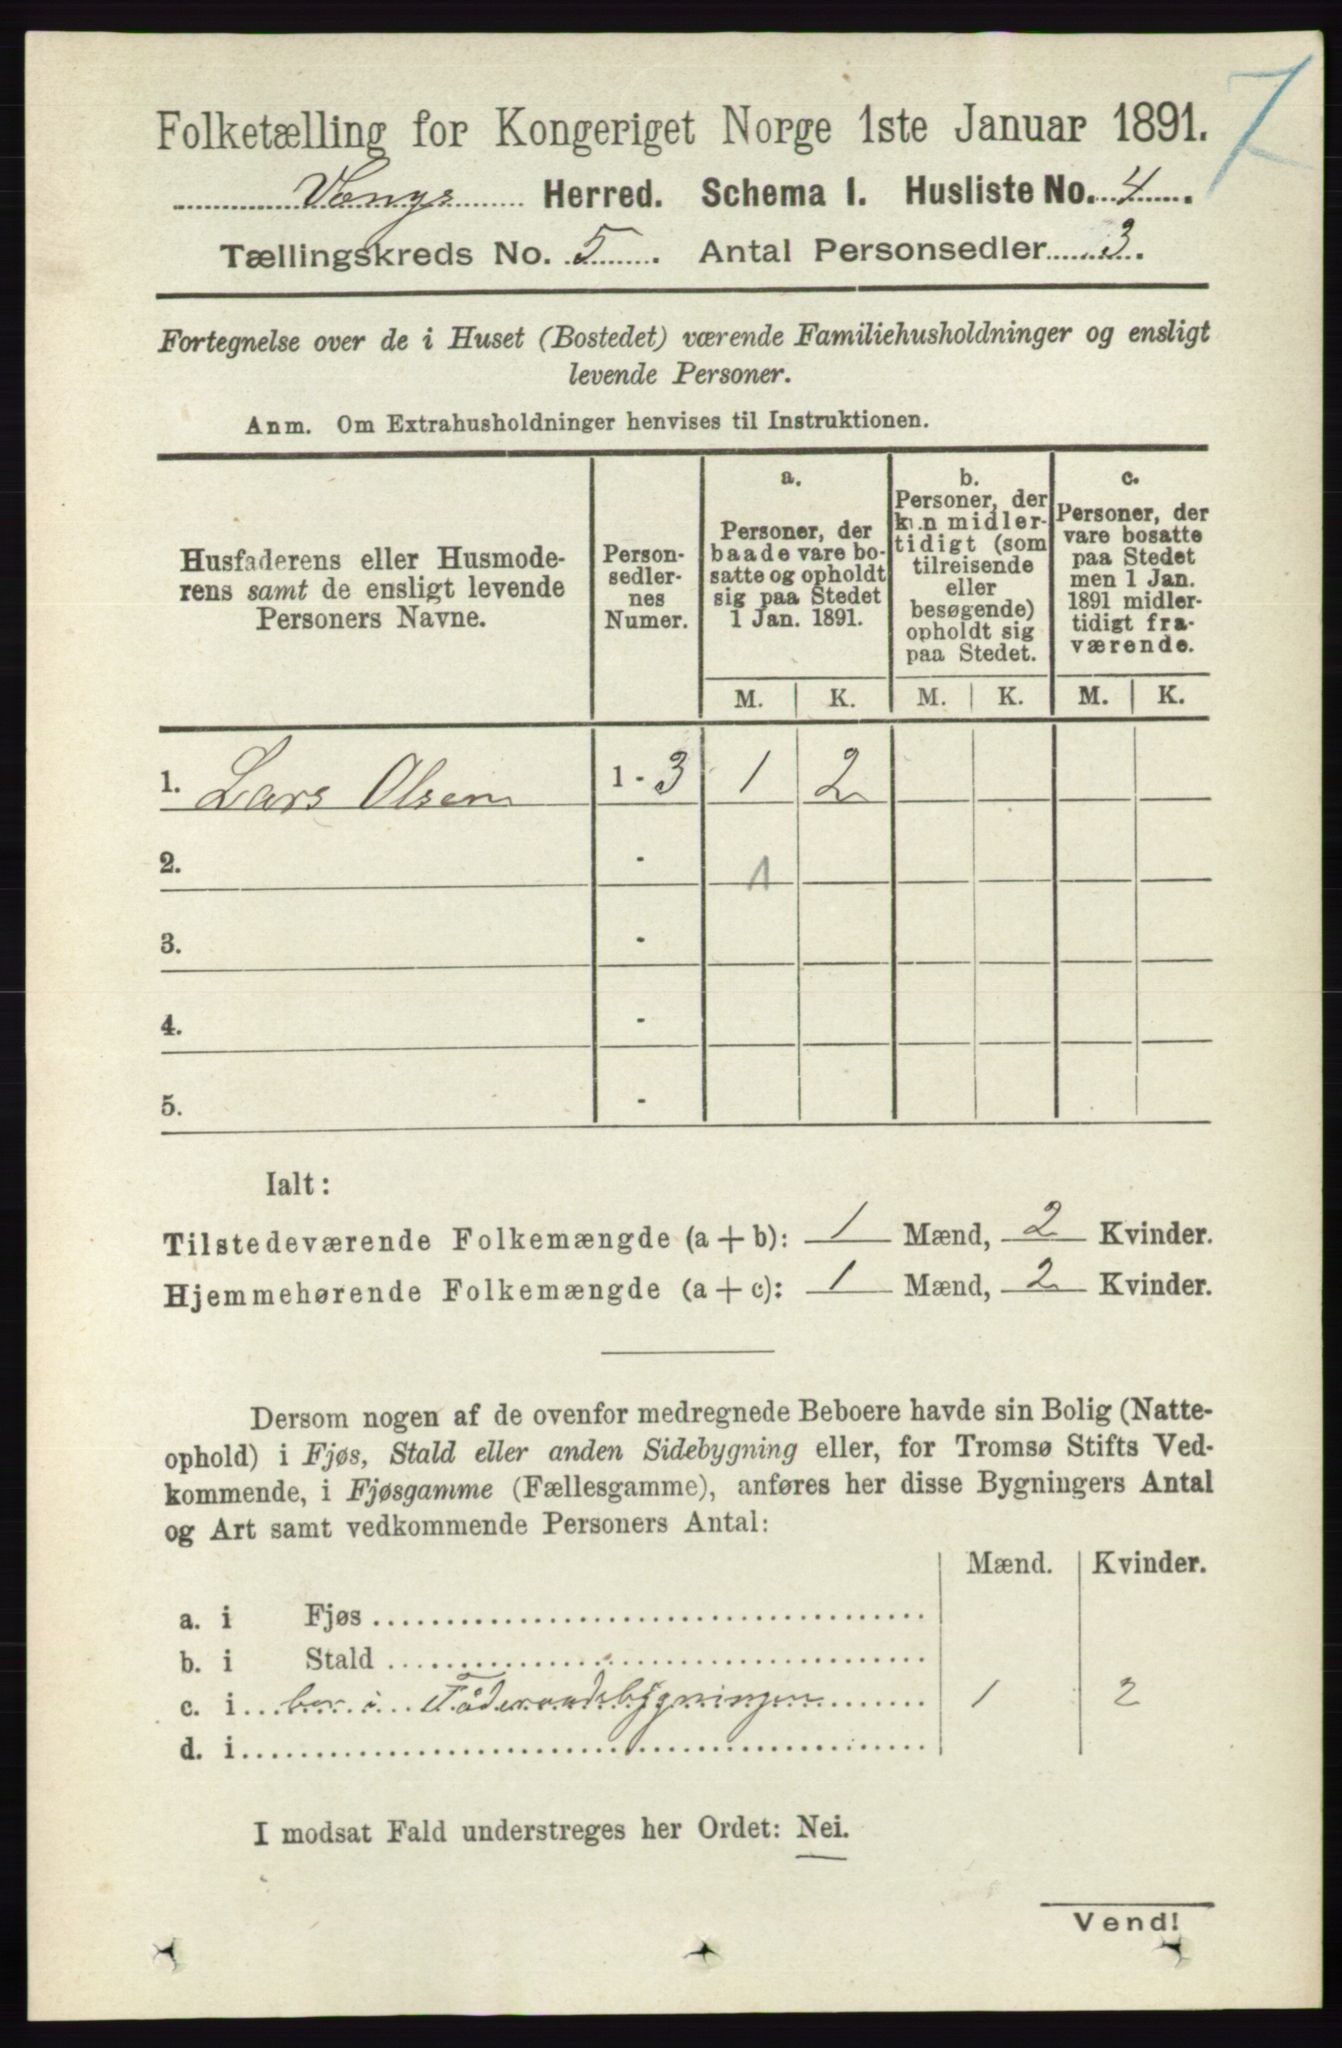 7
Folketælling for Kongeriget Norge 1ste Januar 1891.
Vangs Herred. Schema I. Husliste No. 4.
Tællingskreds No. 5. Antal Personsedler 3.
Fortegnelse over de i Huset (Bostedet) værende Familiehusholdninger og ensligt
levende Personer.
Anm. Om Extrahusholdninger henvises til Instruktionen.
Husfaderens eller Husmode-
rens samt de ensligt levende
Personers Navne.
Person-
sedler-
nes
Numer.
a.
Personer, der
baade vare bo-
satte og opholdt
sig paa Stedet
1 Jan. 1891.
b.
Personer, der
kun midler-
tidigt (som
tilreisende
eller
besøgende)
opholdt sig
paa Stedet.
c.
Personer, der
vare bosatte
paa Stedet
men 1 Jan.
1891 midler-
tidigt fra-
værende.
M. K. M. K. M. K.
1. Lars Olsen 1 - 3 1 2
2. - 1
3. -
4. -
5. -
Ialt:
Tilstedeværende Folkemængde (a + b): 1 Mænd, 2 Kvinder.
Hjemmehørende Folkemængde (a + c): 1 Mænd, 2 Kvinder.
Dersom nogen af de ovenfor medregnede Beboere havde sin Bolig (Natte-
ophold) i Fjøs, Stald eller anden Sidebygning eller, for Tromsø Stifts Ved-
kommende, i Fjøsgamme (Fællesgamme), anføres her disse Bygningers Antal
og Art samt vedkommende Personers Antal:
Mænd. Kvinder.
a. i Fjøs
b. i Stald
c. i bor i Föderaadsbygningen 1 2
d. i
I modsat Fald understreges her Ordet: Nei.
Vend!